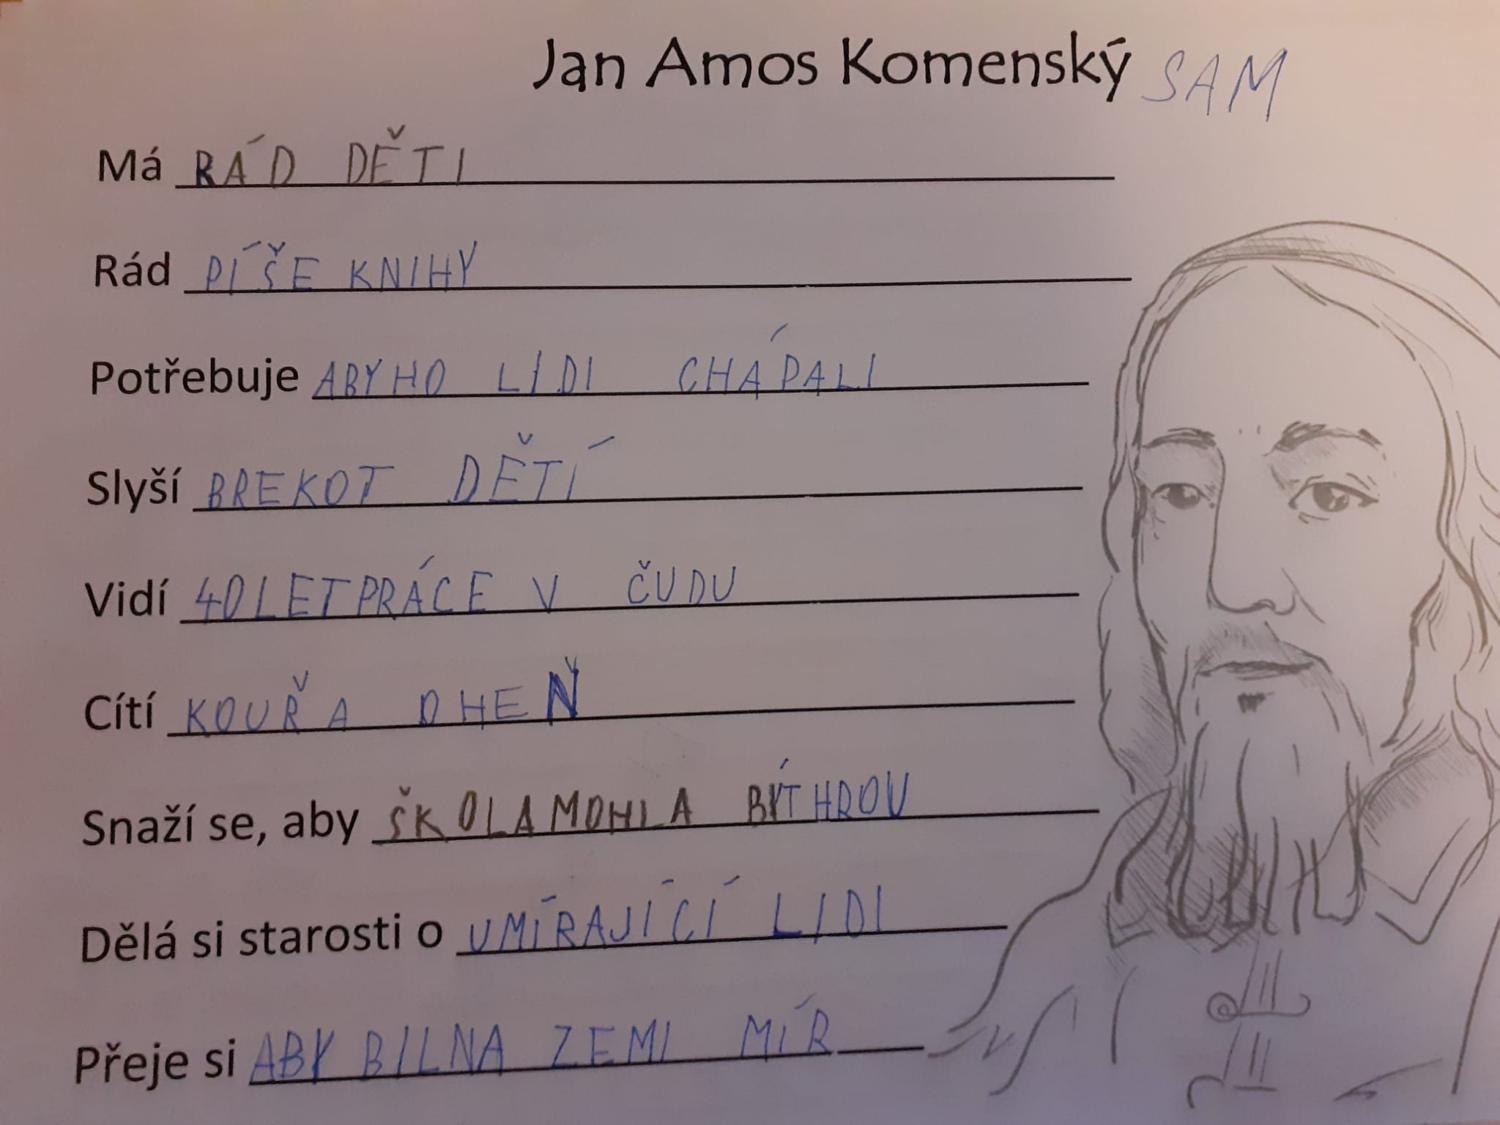 Jan Amos Komenský SAM
Má RÁD DĚTI
Rád PÍŠE KNIHY
Potřebuje ABYHO LIDI CHÁPALI
Slyší BREKOT DĚTÍ
Vidí 40LETPRÁCE V ČUDU
Cítí KOUŘ A OHEŇ
Snaží se, aby ŠKOLAMOHLA BÝTHROU
Dělá si starosti o UMÍRAJÍCÍ LIDI
Přeje si ABY BILNA ZEMI MÍR